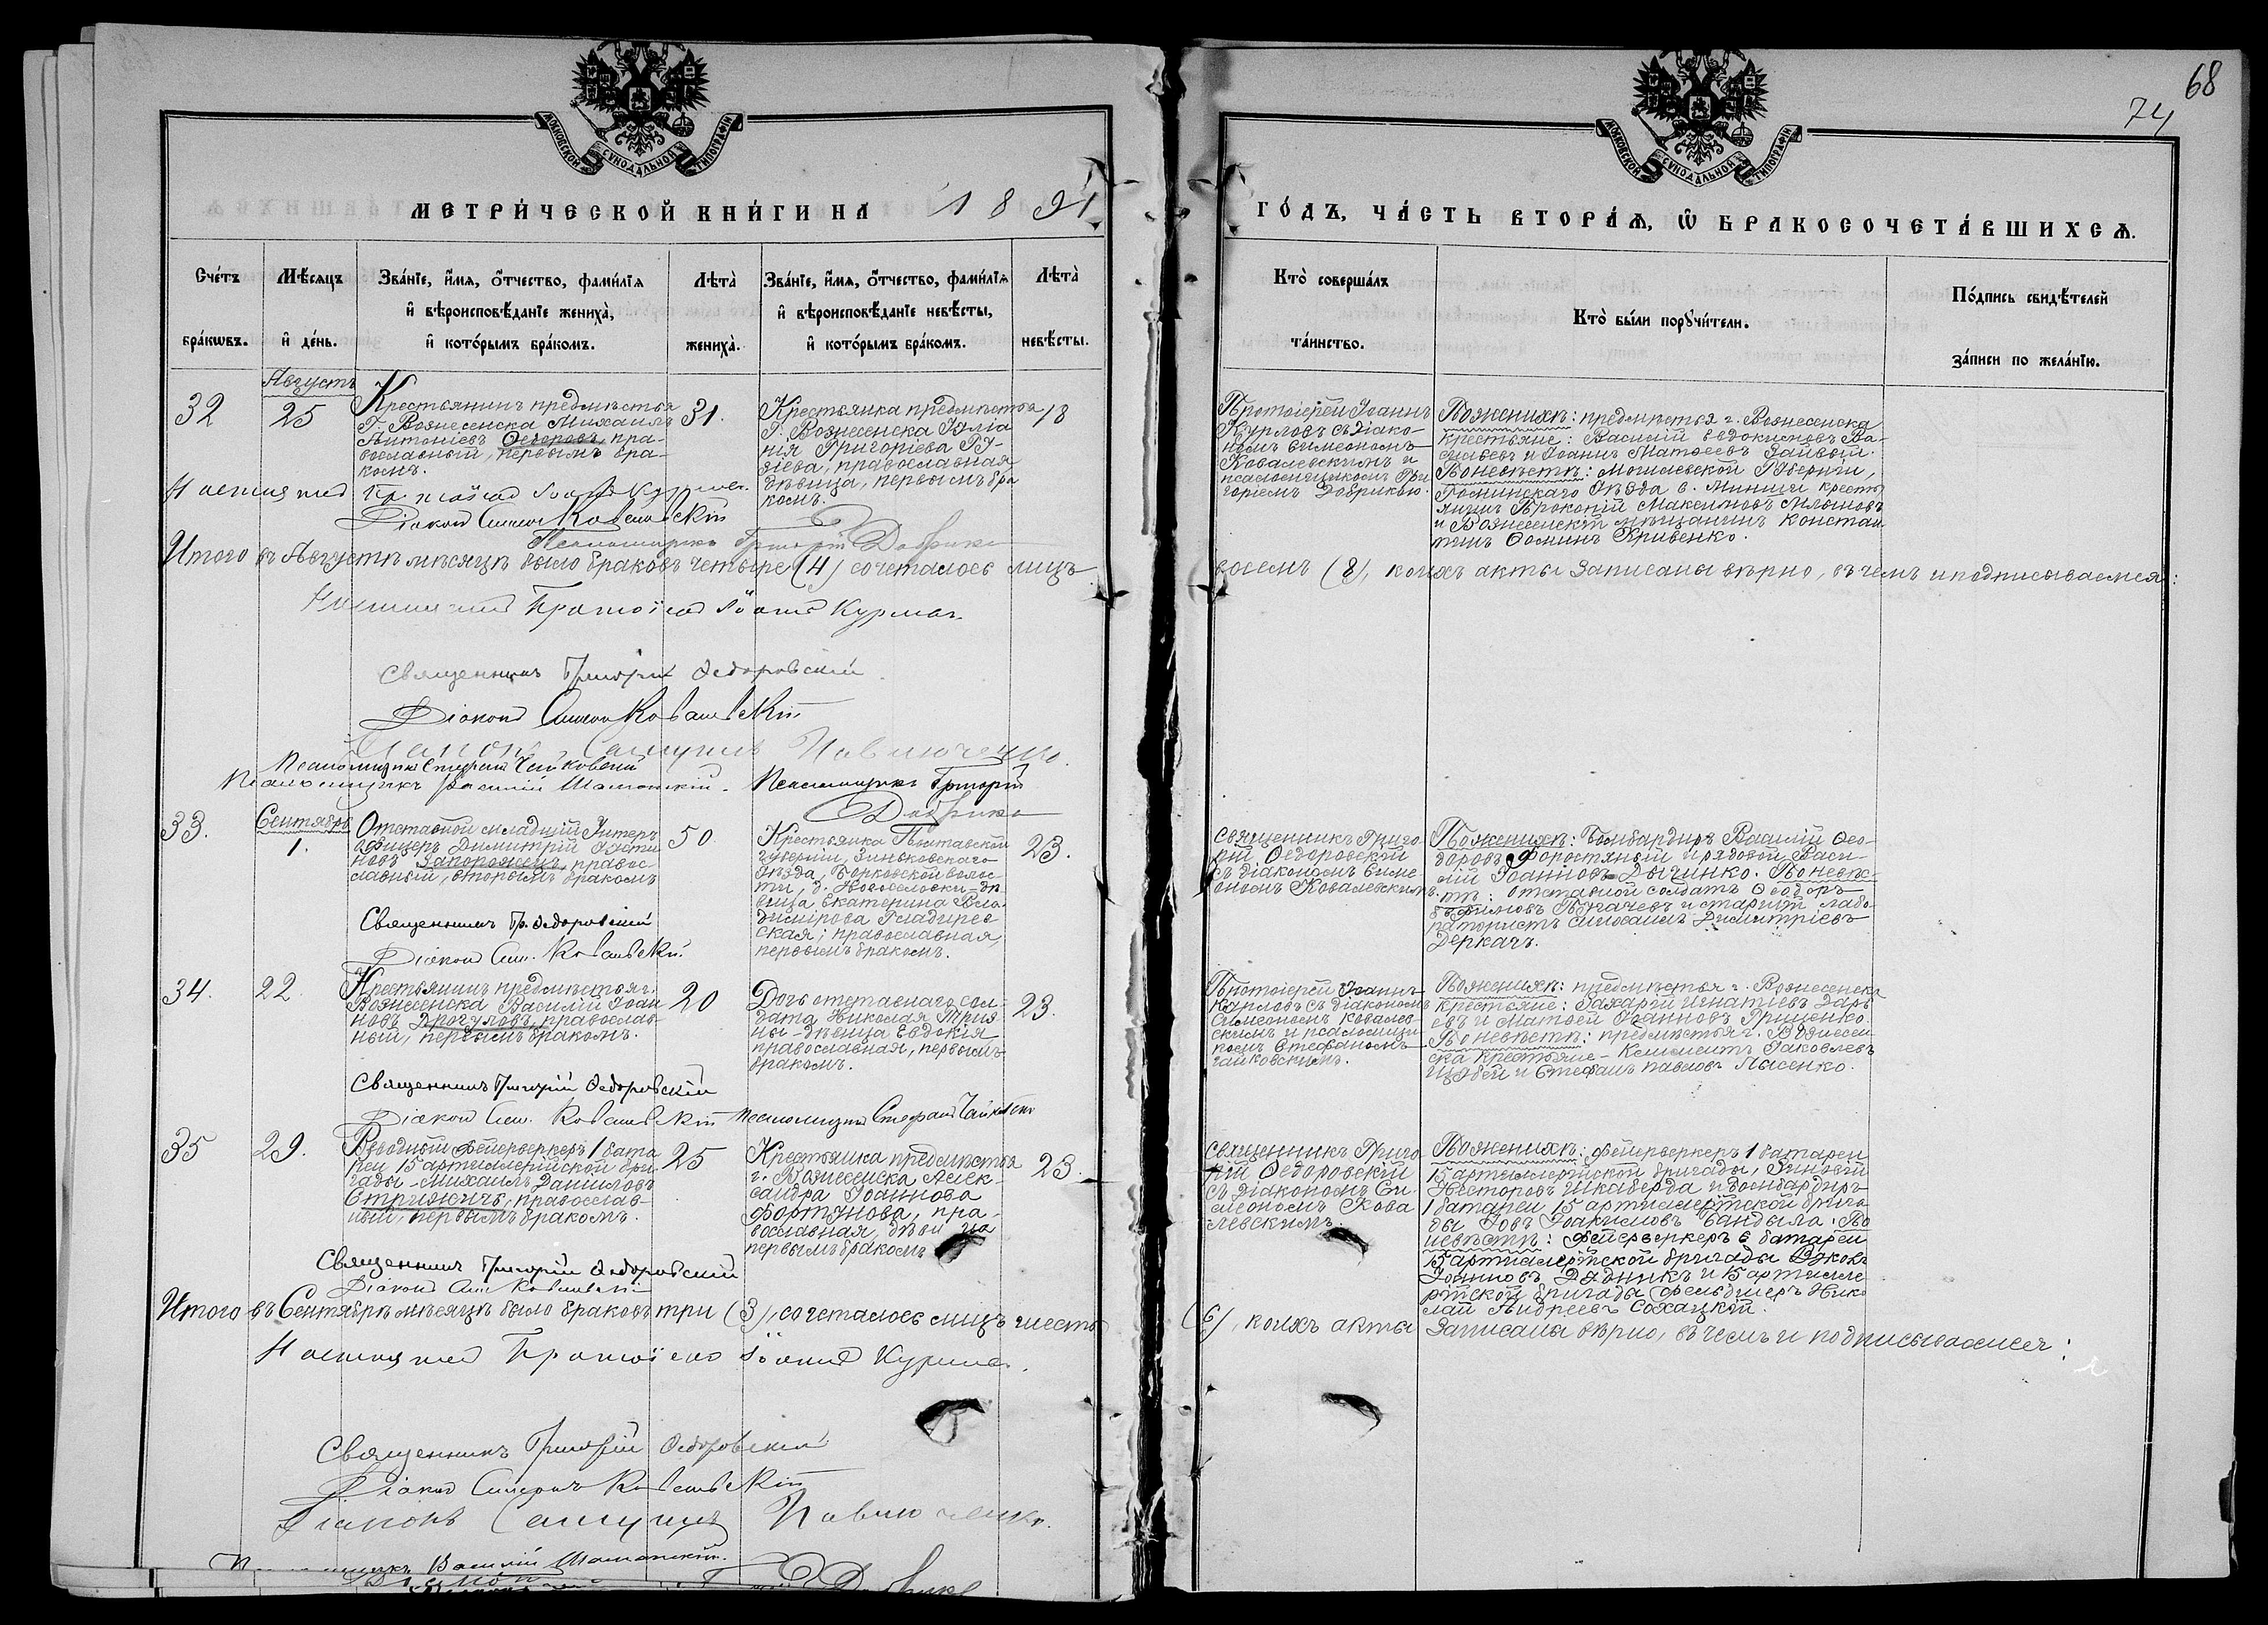 68
74
МОСКОВСКОЙ СУНОДАЛЬНОЙ ТИПОГРАФІИ
МОСКОВСКОЙ СУНОДАЛЬНОЙ ТИПОГРАФІИ
МЕТРИ́ЧЕСКОЙ КНИ́ГИ НА 1891
ГО́ДЪ, ЧА́СТЬ ВТОРА́Ѧ, Ѡ҆ БРАКОСОЧЕТА́ВШИХСѦ.
Сче́тъ бра́кωвъ.
Мѣ́сяцъ и҆ де́нь.
Зва́нїе, и҆́мя, ѻ҆́тчество, фами́лїя
и҆ вѣроисповѣ́данїе жениха̀,
и҆ кото́рымъ бра́комъ.
Лѣта̀ жениха̀.
Зва́нїе, и҆́мя, ѻ҆́тчество, фами́лїя
и҆ вѣроисповѣ́данїе невѣ́сты,
и҆ кото́рымъ бра́комъ.
Лѣта̀ невѣ́сты.
Кто̀ соверша́лъ
та́инство.
Кто̀ бы́ли порꙋчи́тели.
По́дпись свидѣ́телей
за́писи по жела́нїю.
32
Августъ
25
Крестьянинъ предмѣстья
г. Вознесенска Михаилъ
Антоніевъ Ѳедоровъ, пра-
вославный, первымъ бра-
комъ.
31.
Крестьянка предмѣстья
г. Вознесенска Юліа
нія Григоріева Гу-
зіева, православная
дѣвица, первымъ бра
комъ.
18
Протоіерей Іоаннъ
Курловъ съ діако-
номъ Симеономъ
Ковалевскимъ и
псаломщикомъ Гри
горіемъ Добрикою.
По женихѣ: предмѣстья г. Вознесенска
крестьяне: Василій Евдокимовъ Ва-
сильевъ и Іоаннъ Матѳеевъ Гайвый.
По невѣстѣ: Могилевской Губерніи,
уѣзда с. крестъ
янинъ Прокопій Максимовъ
и Вознесенскій мѣщанинъ Констан
тинъ Ѳоминъ Кривенко.
Настоятель Протоіерей Іоаннъ Курловъ.
Діаконъ Симеонъ Ковалевскій
Псаломщикъ Григорій Добрика
Итого въ Августѣ мѣсяцѣ было браковъ четыре (4) сочеталось лицъ
восемь (8), коихъ акты записаны вѣрно, въ чемъ и подписываемся:
Настоятель Протоіерей Іоаннъ Курловъ
Священникъ Григорій Ѳедоровскій
Діаконъ Симеонъ Ковалевскій
Діаконъ Самуилъ Павлюченко.
Псаломщикъ Стефанъ Чайковскій
Псаломщикъ Василій Шаманскій. Псаломщикъ Григорій
Добрика
33.
Сентябрь
1.
Отставной младшій Унтеръ
офицеръ Димитрій Іусти
новъ Запорожецъ, правос-
славный, вторымъ бракомъ
50
Крестьянка Полтавской
губерніи, Зиньковскаго
уѣзда, Борковской волос-
ти, д. -дѣ
вица Екатерина Вла-
димірова
ская; православная,
первымъ бракомъ.
23.
Священникъ Григо
рій Ѳедоровскій
съ діакономъ Симе
ономъ Ковалевскимъ.
По женихѣ: Бомбардиръ Василій Ѳео-
доровъ Форостяный и рядовой Васи-
лій Іоанновъ Дычинко. По невѣс-
тѣ: отставной солдатъ Ѳеодоръ
Пугачевъ и старшій лабо-
ратористъ Димитріевъ
Деркачъ.
Священникъ Гр. Ѳедоровскій
Діаконъ Сим. Ковалевскій.
34.
22.
Крестьянинъ предмѣстья г.
Вознесенска Василій Іоан
новъ Дрогуновъ, православ-
ный, первымъ бракомъ.
20
Дочь отставнаго сол-
дата Николая
-дѣвица Евдокія
православная, первымъ
бракомъ.
23.
Протоіерей Іоаннъ
Курловъ съ діакономъ
Симеономъ Ковалев-
скимъ и псаломщи-
комъ Стефаномъ
Чайковскимъ.
По женихѣ: предмѣстья г. Вознесенска
крестьяне: Захарій Игнатіевъ
евъ и Матѳей Іоанновъ Гриценко.
По невѣстѣ: предмѣстья г. Вознесен-
ска крестьяне - Климентъ Іаковлевъ
и Стефанъ Павловъ Лысенко.
Священникъ Григорій Ѳедоровскій
Діаконъ Сим. Ковалевскій Псаломщикъ Стефанъ Чайковскій
35
29.
Взводный фейерверкеръ 1 бата
реи 15 артиллерійской бри-
гады - Михаилъ Даниловъ
Стрижичъ, православ-
ный, первымъ бракомъ.
25
Крестьянка предмѣстья
г. Вознесенска Алек-
сандра Іоаннова
Фортунова, пра-
вославная, дѣвица
первымъ бракомъ
23.
Священникъ Григо
рій Ѳедоровскій
съ діакономъ Си-
меономъ Кова
левскимъ.
По женихѣ: фейерверкеръ 1 батареи
15 артиллерійской бригады, Зиновій
Несторовъ Шкаберда и бомбардиръ
1 батареи 15 артиллерійской брига-
ды Іовъ Іоакимовъ Бандыла. По
невѣстѣ: фейерверкеръ 6 батареи
15 артиллерійской бригады Іаковъ
Іоанновъ и 15 артилле
рійской бригады фельдшеръ Нико
лай Андреевъ Сохацкій.
Священникъ Григорій Ѳедоровскій
Діаконъ Сим. Ковалевскій
Итого въ Сентябрѣ мѣсяцѣ было браковъ три (3), сочеталось лицъ шесть
(6), коихъ акты записаны вѣрно, въ чемъ и подписываемся:
Настоятель Протоіерей Іоаннъ Курловъ.
Священникъ Григорій Ѳедоровскій
Діаконъ Симеонъ Ковалевскій
Діаконъ Самуилъ Павлюченко.
Василій Шаманскій.